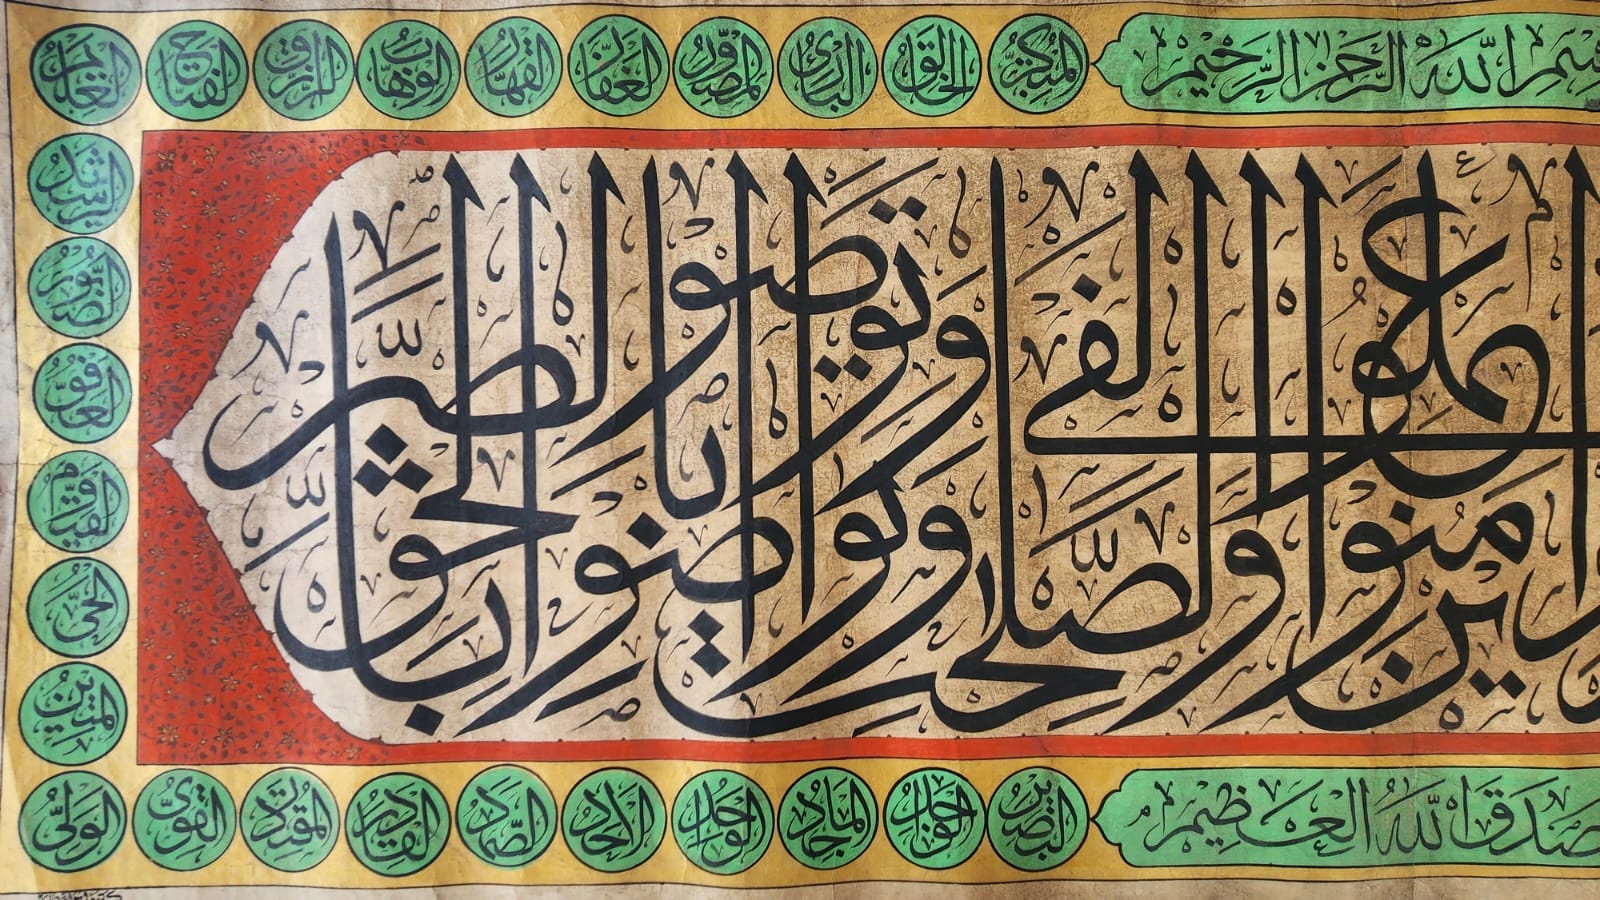 بسم الله الرحمن الرحيم
المتكبر
الخالق
البارئ
المصور
الغفار
القهار
الوهاب
الرزاق
الفتاح
العليم
الرشيد
الصبور
القيوم
الحي
المتين
الولي
القوي
المقتدر
القادر
الصمد
الاحد
الواحد
الماجد
البصير
صدق الله العظيم
امنوا وعملوا الصلحت وتواصوا بالحق وتواصوا بالصبر